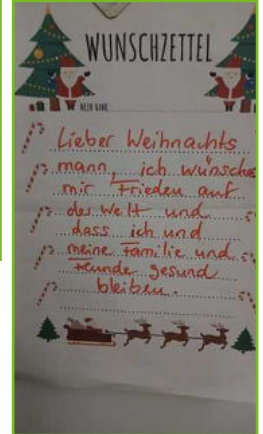 WUNSCHZETTEL
MEIN NAME:
Lieber Weihnachts
mann, ich wünsche
mir Frieden auf
der Welt und
dass ich und
meine Familie und
Freunde gesund
bleiben.